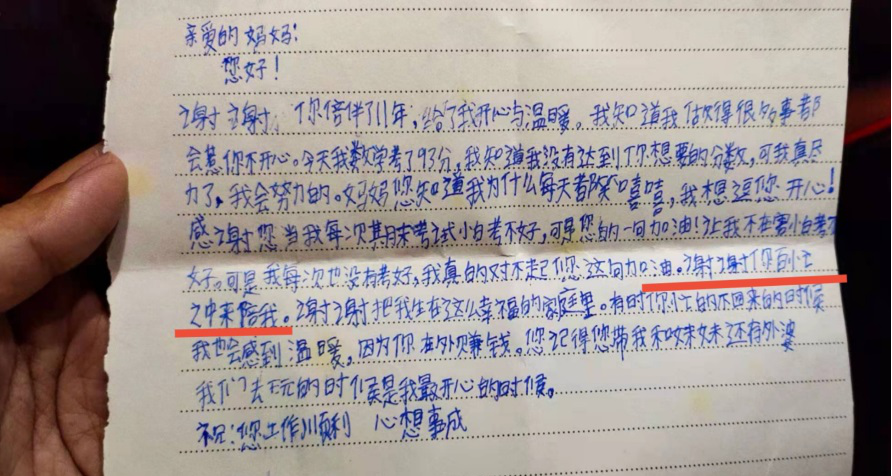 亲爱的妈妈:
您好!
谢谢,你倍伴了11年,给了我开心与温暖。我知道我做得很多事都
会惹你不开心。今天我数学考了93分,我知道我没有达到你想要的分数,可我真尽
力了,我会努力的。妈妈您知道我为什么每天都笑嘻嘻,我想逗您开心!
感谢您当我每次其月末考试怕考不好,可是您的一句加油!让我不在害怕考不
好。可是我每次也没有考好,我真的对不起您这句加油。谢谢你百忙
之中来陪我。谢谢把我生在了这么幸福的家庭里。有时你忙的不回来的时候
我也会感到温暖,因为你在外赚钱。您记得您带我和妹妹还有外婆
我们去玩的时候是我最开心的时候。
祝:您工作顺利 心想事成